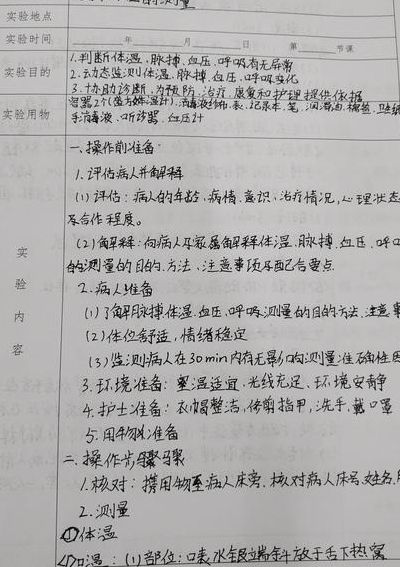 的测量
实验地点
实验时间 年 月 日 第 节课
1.判断体温、脉搏、血压、呼吸有无异常
实验目的 2.动态监测体温、脉搏、血压、呼吸变化
3.协助诊断,为预防、治疗、康复和护理提供依据
容器2个(盛方体温计)、消毒液纱布、表、记录本、笔、润滑油、棉签、卫生纸
实验用物 手消毒液、听诊器、血压计
一、操作前准备
1.评估病人并解释
(1)评估:病人的年龄、病情、意识、治疗情况,心理状态
及合作程度。
(2)解释:向病人及家属解释体温、脉搏、血压、呼
的测量的目的、方法、注意事项及配合要点
实验内容
2.病人准备
(1)了解脉搏体温、血压、呼吸、测量的目的方法、注意事
(2)体位舒适,情绪稳定
(3)监测病人在30min内有无影响测量准确性因
3.环境准备:室温适宜、光线充足、环境安静
4.护士准备:衣帽整洁,修剪指甲,洗手,戴口罩
5.用物准备
二、操作步骤
1.核对:携用物至病人床旁,核对病人床号、姓名,
2.测量
①体温
口温:(1)部位:口表水银端斜放于舌下热窝